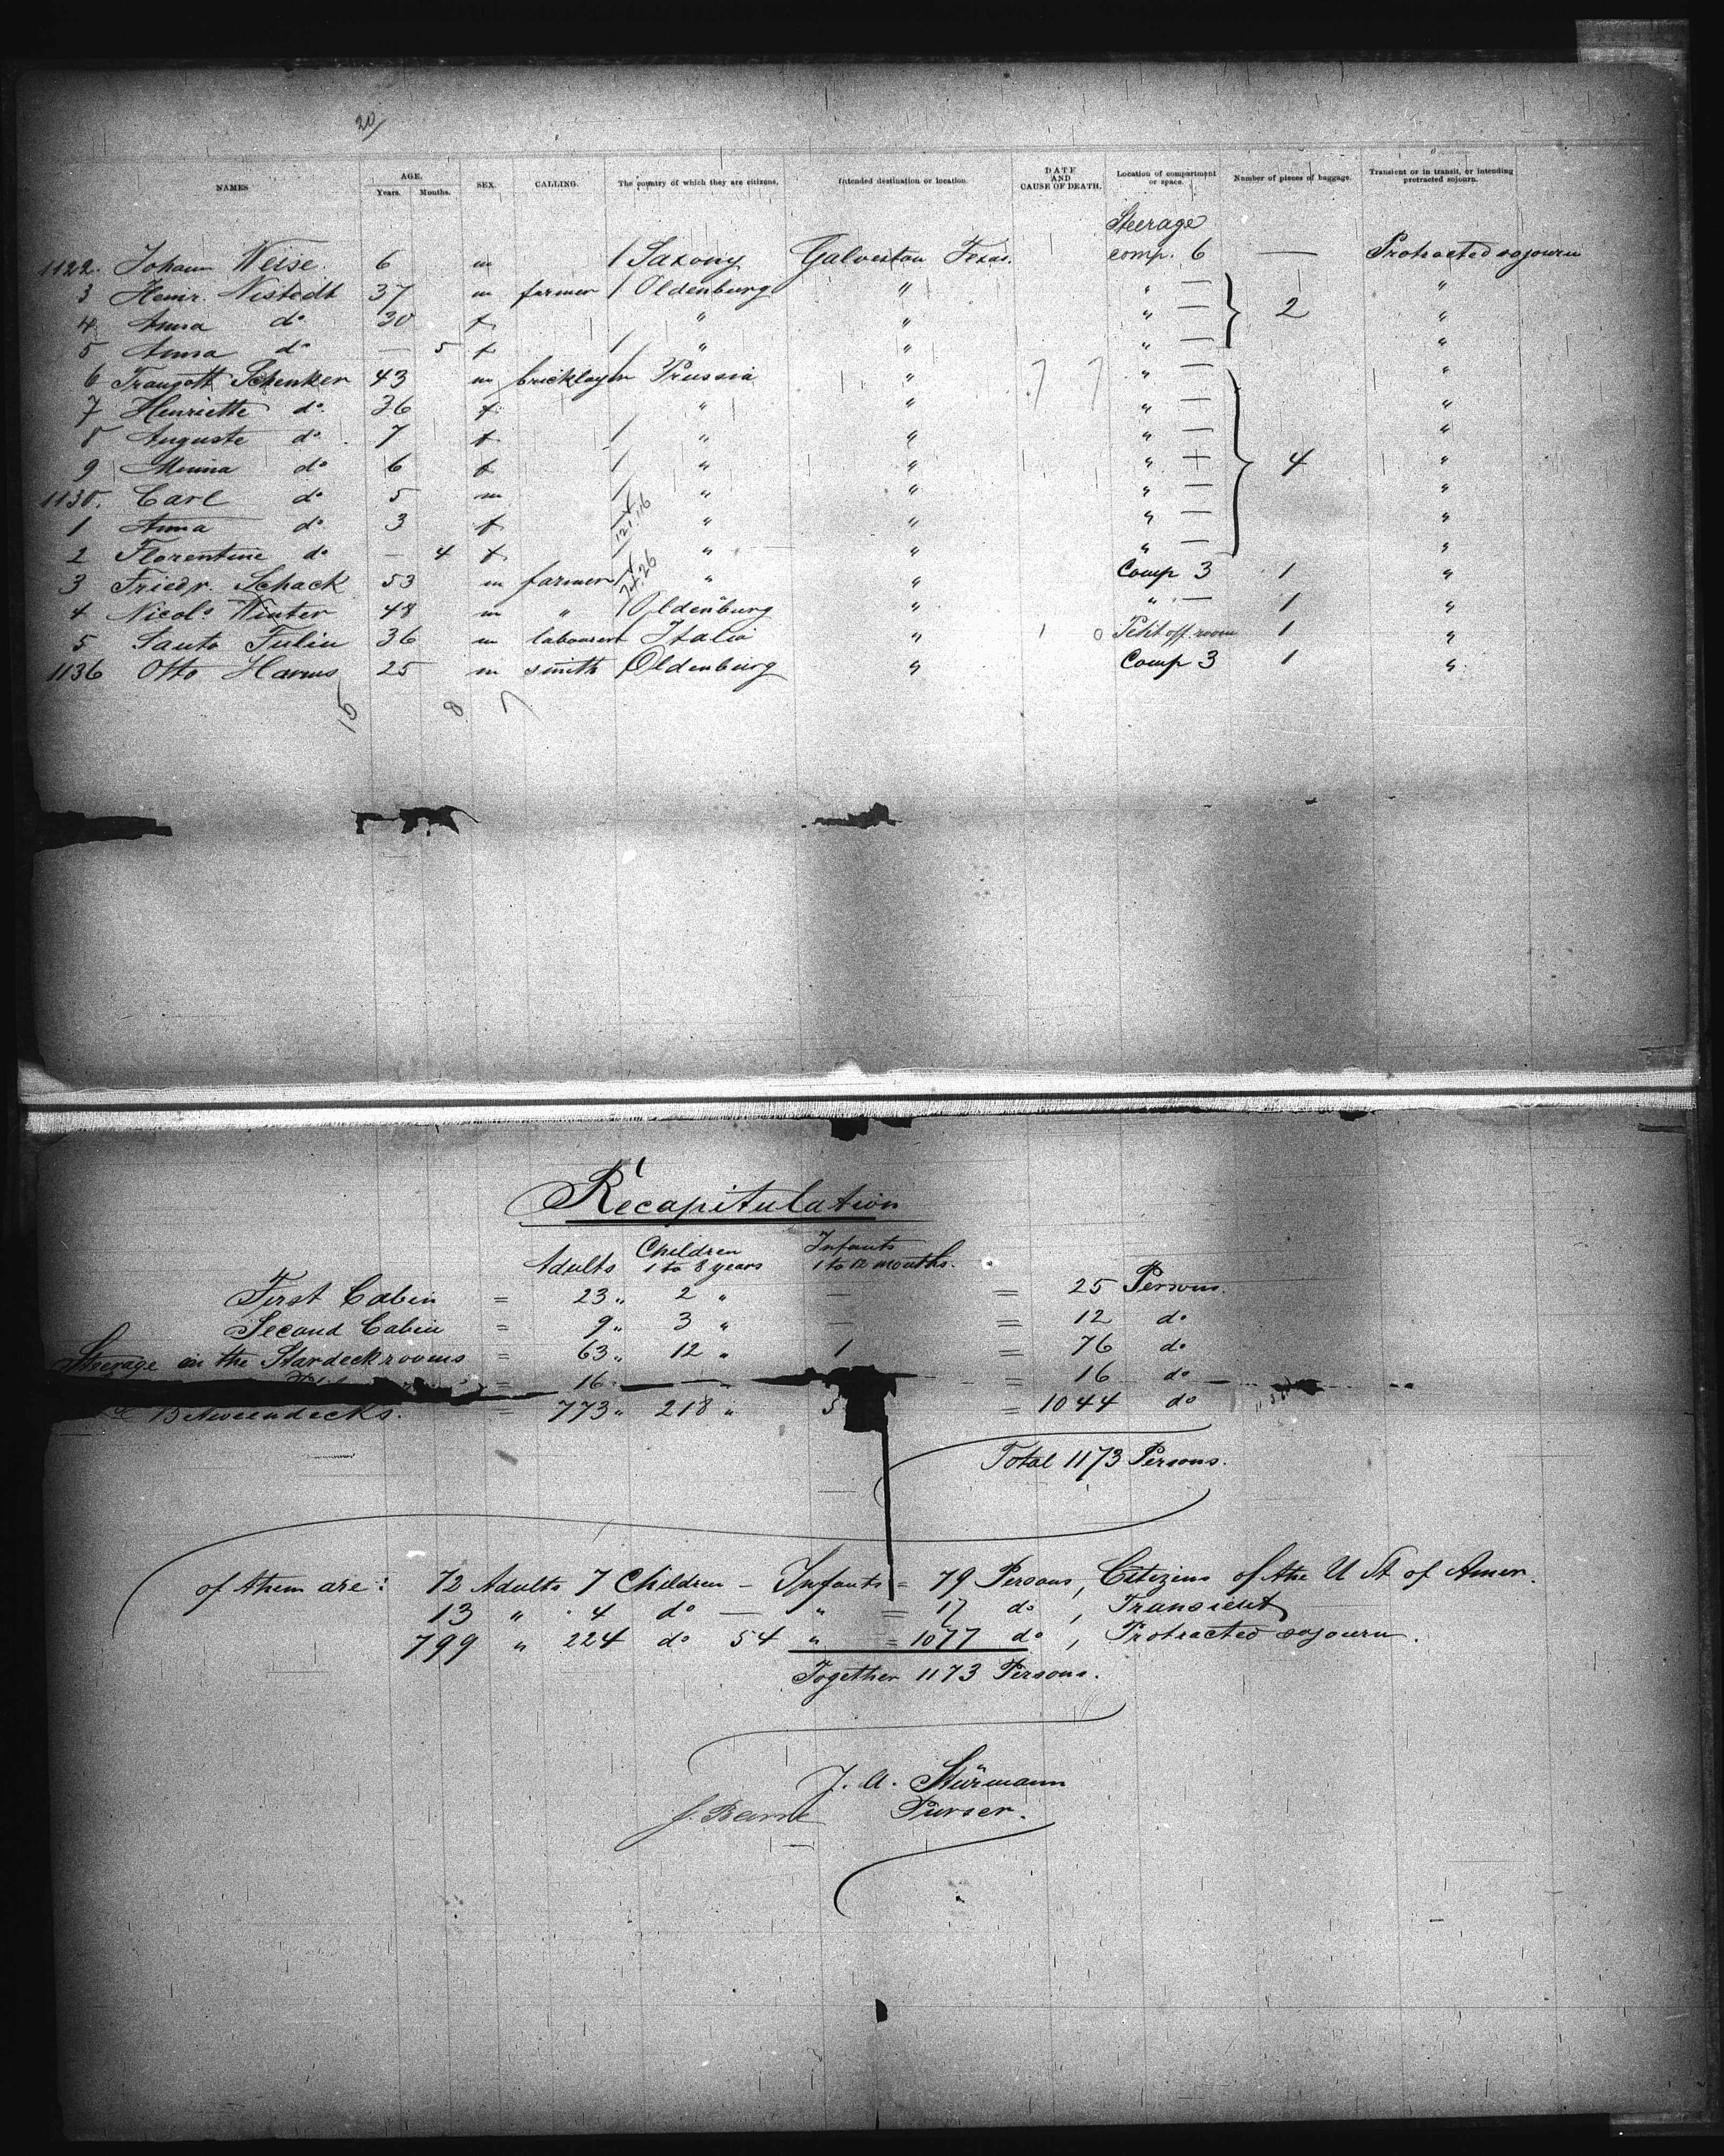 20/
NAMES AGE. Years. Months. SEX. CALLING. The country of which they are citizens. Intended destination or location. DATE AND CAUSE OF DEATH. Location of compartment or space. Number of pieces of baggage. Transient or in transit, or intending protracted sojourn.
Steerage
1122. Johann Weise. 6 m / Saxony Galveston Texas. comp. 6 — Protracted sojourn
3 Heinr. Nistedt 37 m farmer / Oldenburg " " — 2 "
4 Anna do 30 f " " " — "
5 Anna do — 5 f / " " " — "
6 Traugott Schenker 43 m bricklayer Prussia " " — "
7 Henriette do. 36 f. " " " — "
8 Auguste do. 7 f / " " " — "
9 Minna do 6 f / " " " — 4 "
1130. Carl do 5 m / " " " — "
1 Anna do 3 f " " " — "
2 Florentine do — 4 f " " " — "
3 Friedr. Schack 53 m farmer " " Comp 3 1 "
4 Nicols Winter 48 m " / Oldenburg " " — 1 "
5 Santo Fuliu 36 m labourer / Italia " 0 Petit off. room 1 "
1136 Otto Harms 25 m smith / Oldenburg " Comp 3 1 "
15 8 7
Recapitulation
Adults Children 1 to 8 years Infants 1 to 12 months.
First Cabin = 23 " 2 " — = 25 Persons.
Second Cabin = 9 " 3 " — = 12 do
Steerage in the Stardeckrooms = 63 " 12 " 1 = 76 do
= 16 — " — = 16 do
Betweendecks. = 773 " 218 " 5 = 1044 do
Total 1173 Persons.
of them are: 72 Adults 7 Children — Infants = 79 Persons, Citizens of the U St of Amer.
13 " 4 do — " = 17 do, Transient
799 " 224 do 54 " = 1077 do, Protracted sojourn.
Together 1173 Persons.
J. A. Stürmann
Purser.